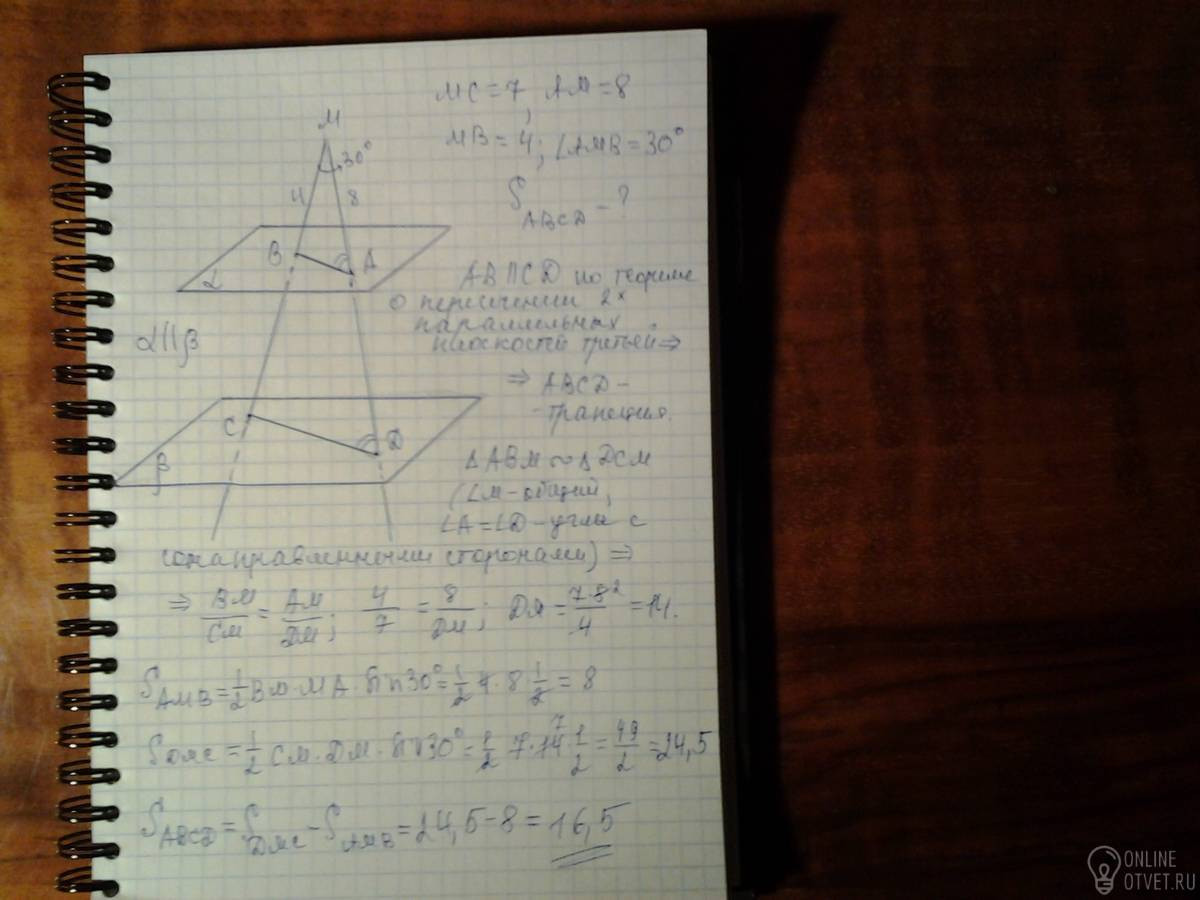 MC = 7, AM = 8
MB = 4; ∠AMB = 30°
S ABCD - ?
M
30°
4 8
B A
α
α || β
C D
β
AB || CD по теореме
о пересечении 2х
параллельных
плоскостей третьей ⇒
⇒ ABCD -
- трапеция.
Δ ABM ∾ Δ DCM
(∠M - общий,
∠A = ∠D - углы с
сонаправленными сторонами) ⇒
⇒ BM/CM = AM/DM; 4/7 = 8/DM; DM = 7·8²/4 = 14.
S AMB = 1/2 BM · MA · sin 30° = 1/2 4 · 8 · 1/2 = 8
S DMC = 1/2 CM · DM · sin 30° = 1/2 · 7 · 14 7 · 1/2 = 49/2 = 24,5
S ABCD = S DMC - S AMB = 24,5 - 8 = 16,5
ONLINE
OTVET.RU